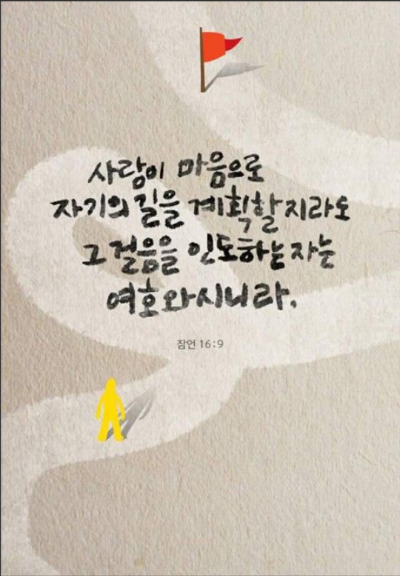 사람이 마음으로
자기의 길을 계획할지라도
그 걸음을 인도하는 자는
여호와시니라.
잠언 16:9